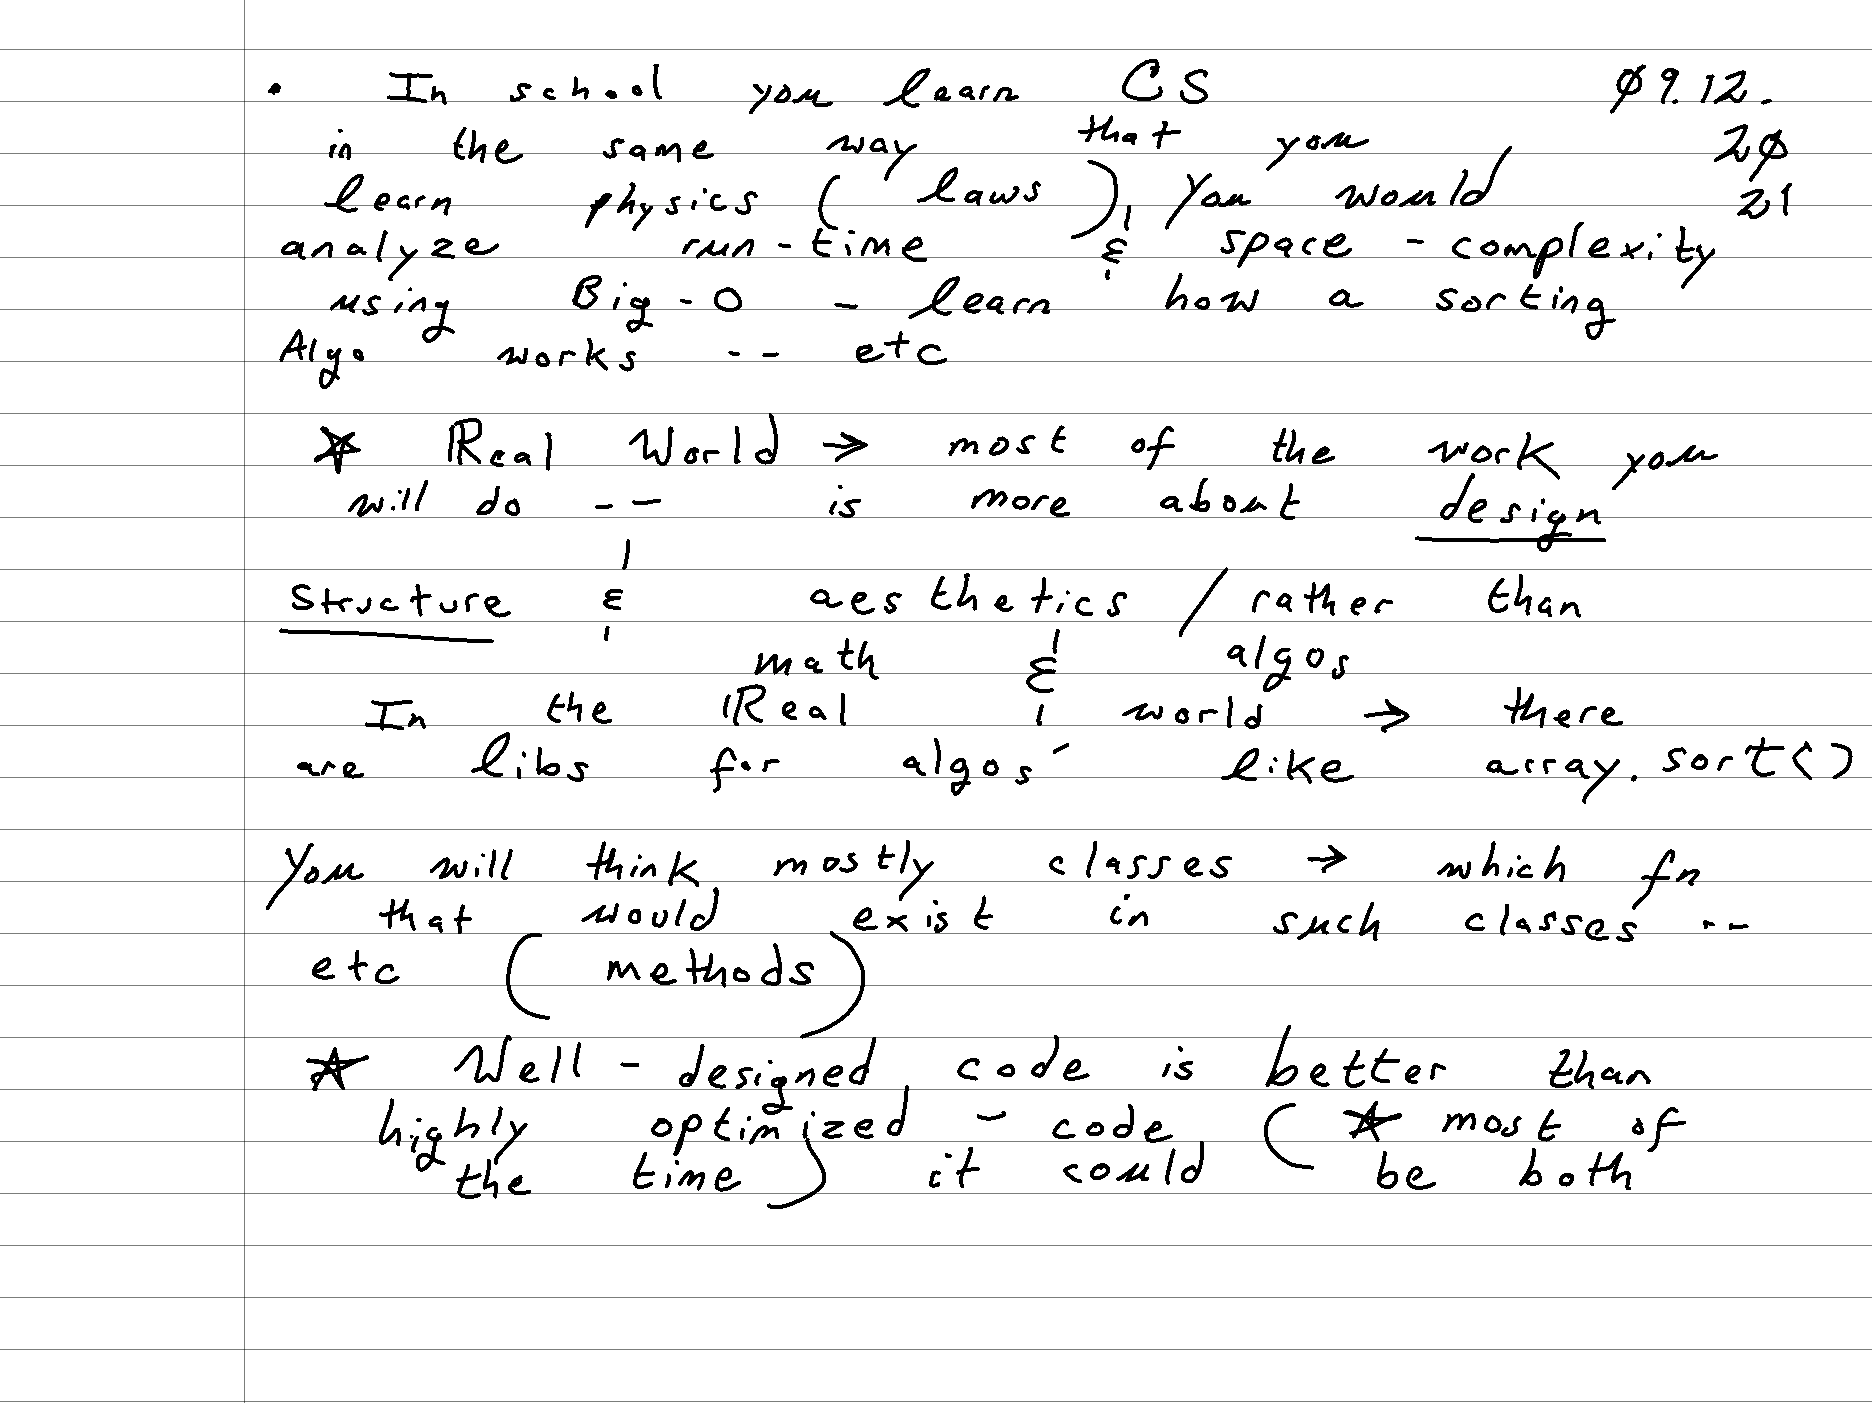 • In school you learn CS 09.12.
in the same way that you 20
learn physics ( laws ), You would 21
analyze run-time & space - complexity
using Big-O - learn how a sorting
Algo works -- etc
☆ Real World → most of the work you
will do -- is more about design
Structure & aesthetics / rather than
math & algos
In the Real world → there
are libs for algos - like array.sort()
You will think mostly classes → which fn
that would exist in such classes --
etc ( methods )
☆ Well-designed code is better than
highly optimized - code ( ☆ most of
the time ) it could be both